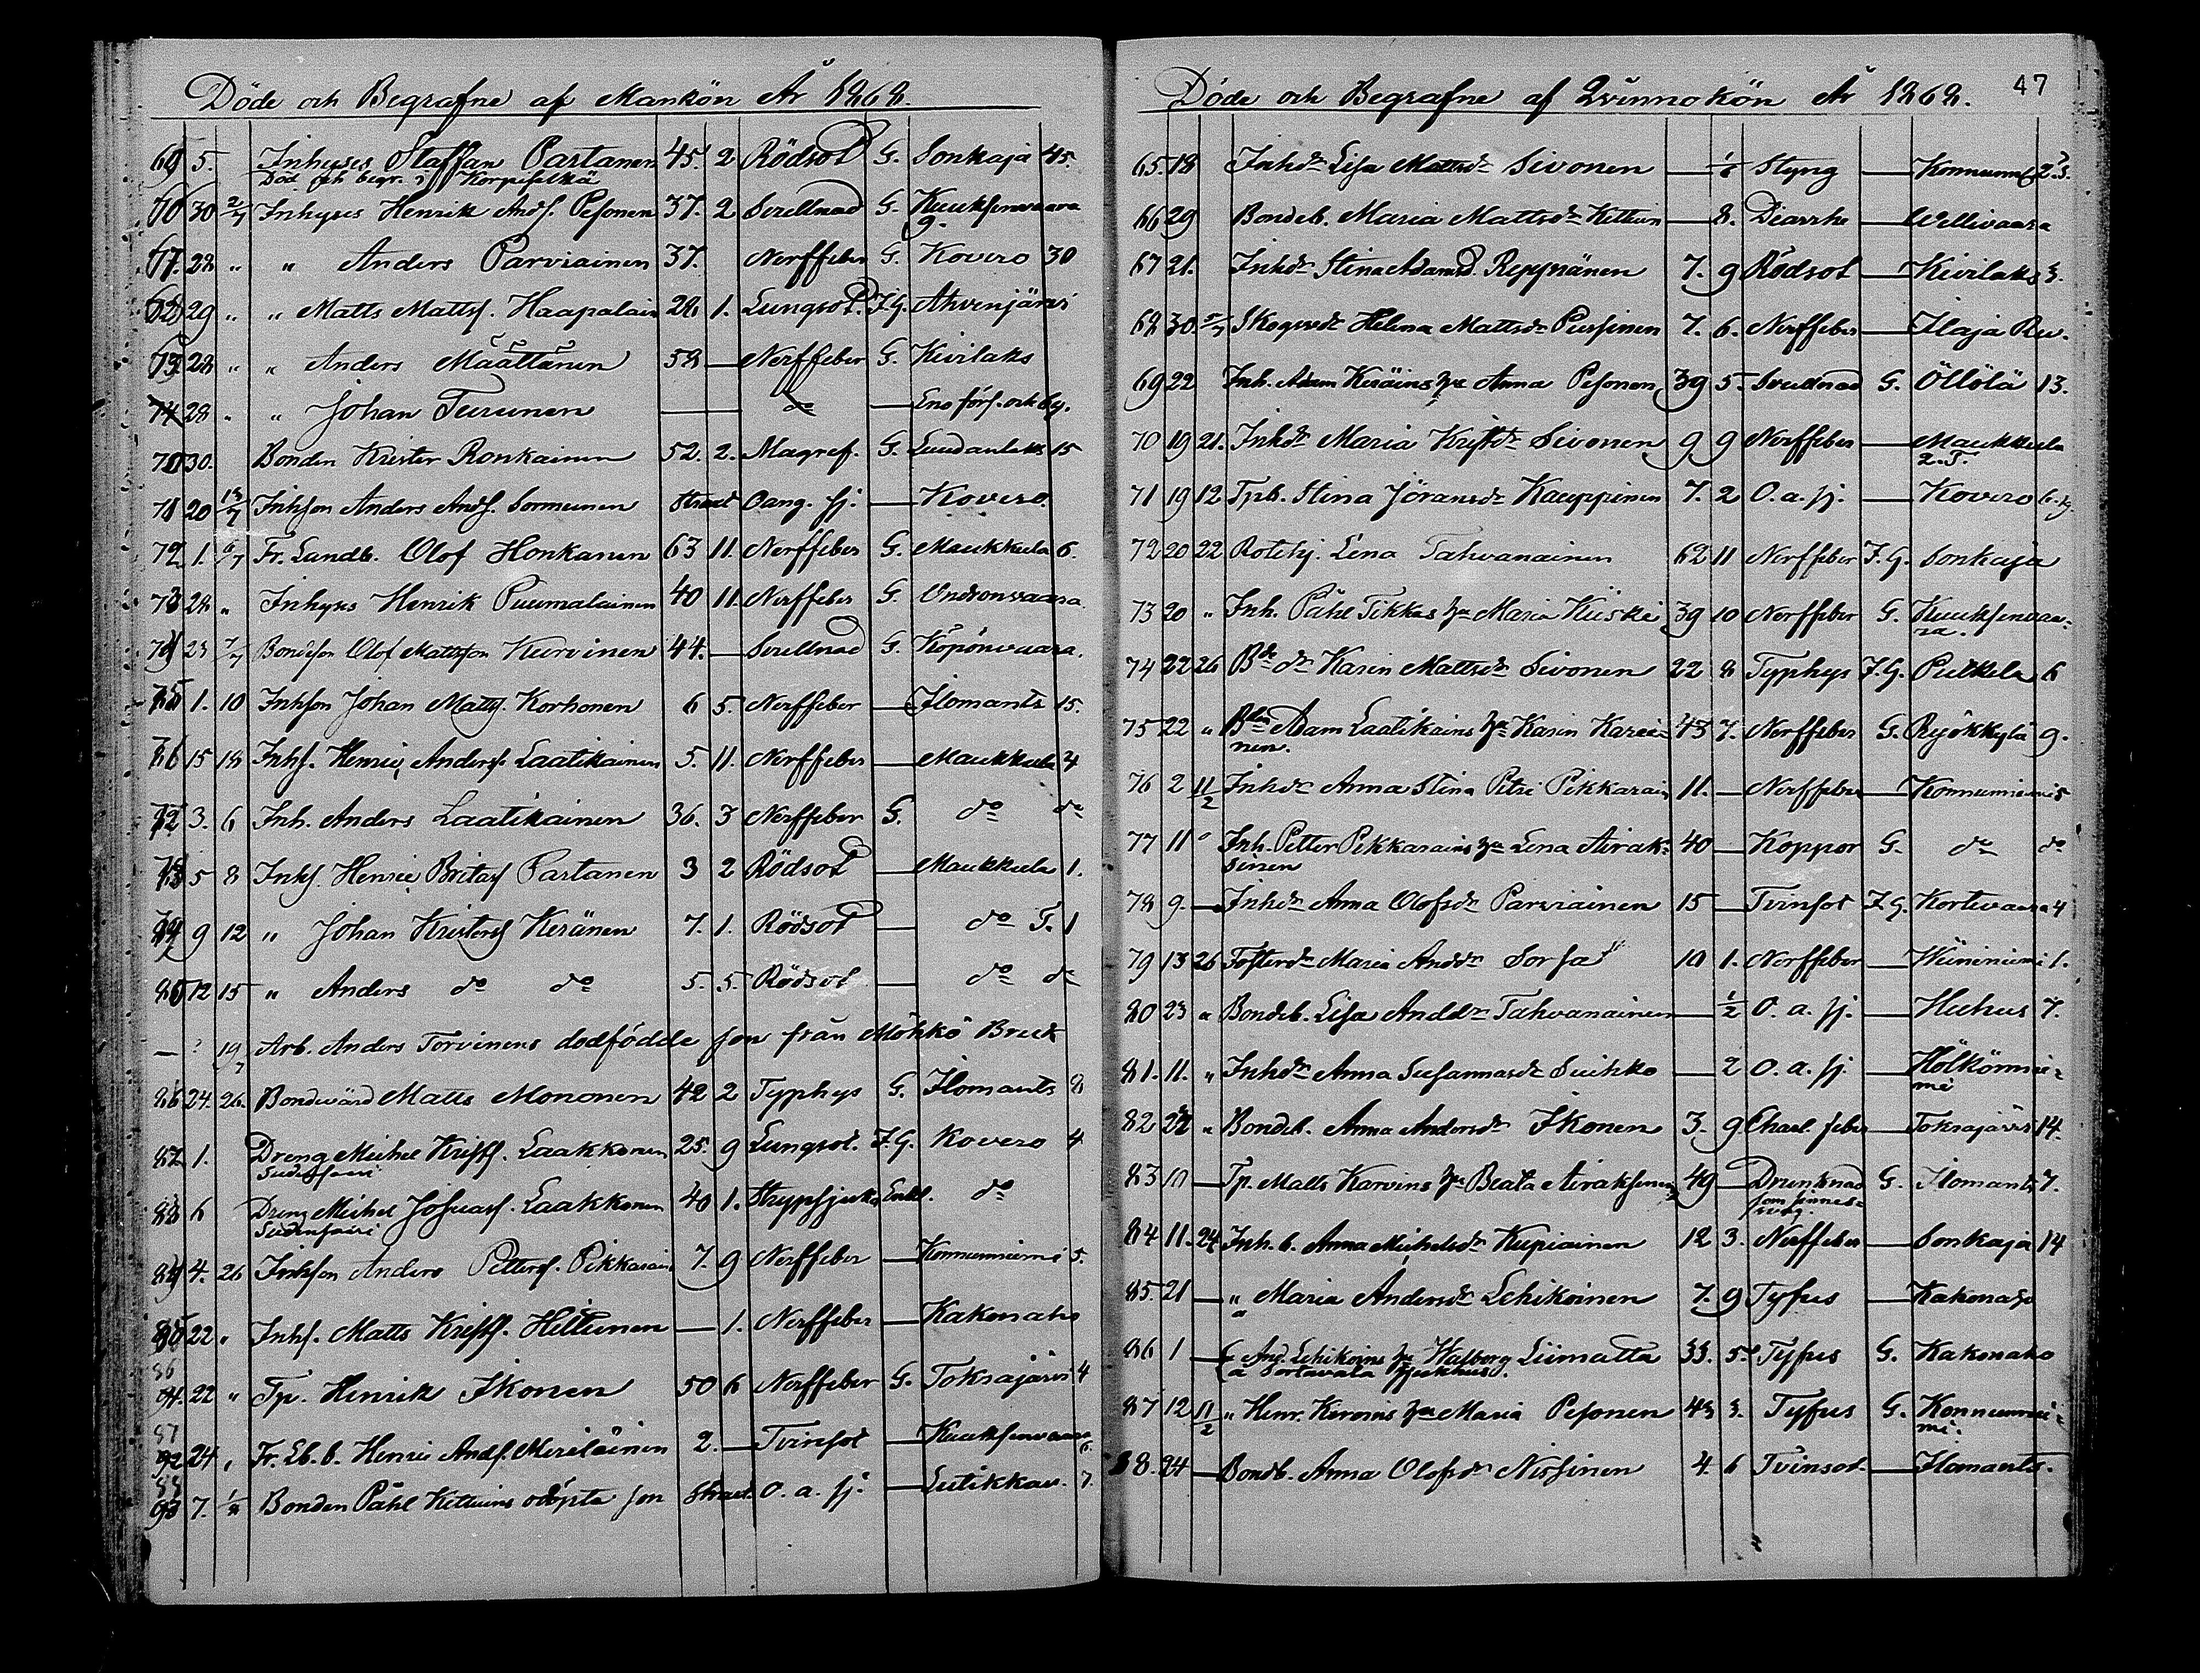 Döde och Begrafne af Mankön År 1868.
69 5. Inhyses Staffan Partanen 45 2 Rödsot G. Sonkaja 45.
Död och begr. i Korpiselkä
30 2/7 Inhyses Henrik Ands. Pesonen 37. 2 Svullnad G. Kuuksenvaara
9.
28 " " Anders Parviainen 37. Nerffeber G. Kovero 30
29 " " Matts Matts. Haapalain 28 1. Lungsot. F.G. Ahvenjärvi
28 " " Anders Määttänen 58 — Nerffeber G. Kivilaks
28 " " Johan Turunen — do — Eno förs. och by.
70 30. Bonden Krister Ronkainen 52. 2. Magref. G. Luudanlaks 15
71 20 13/7 Inhson Anders Ands. Sormunen Strax Oang. sj. — Kovero.
72 1. 6/7 Fr. Landb. Olof Honkanen 63 11. Nerffeber G. Maukkula 6.
73 28 " Inhyses Henrik Puumalainen 40 11. Nerffeber G. Undronvaara.
74 23 7/7 Bondeson Olof Mattsson Kurvinen 44. — Svullnad G. Köpönvaara.
75 1. 10 Inhson Johan Matts. Korhonen 6 5. Nerffeber — Ilomants 15.
76 15 18 Inhs. Henric Anders. Laatikainen 5. 11. Nerffeber — Maukkula 4
3. 6 Inh. Anders Laatikainen 36. 3 Nerffeber G. do do
5 8 Inhs. Henric Britas Partanen 3 2 Rödsot — Maukkula 1.
9 12 " Johan Kristers Keränen 7. 1. Rödsot — do T. 1
80 12 15 " Anders do do 5. 5. Rödsot — do do
— ? 19/7 Arb. Anders Torvinens dödfödde son från Möhkö Bruk
24. 26. Bondevärd Matts Mononen 42 2 Typhys G. Ilomants 8
82 1. Dreng Michel Krists. Laakkonen 25. 9 Lungsot. F.G. Kovero 4
Sudensaari
83 6 Dreng Michel Josuas. Laakkonen 40 1. Strypsjuka Enkl. do
Sudensaari
84 4. 26 Inhson Anders Petters. Pikkarain 7. 9 Nerffeber — Konnunniemi 5.
85 22 " Inhs. Matts Krists. Hiltunen — 1. Nerffeber — Kakonaho
86
22 " Tp. Henrik Ikonen 50 6 Nerffeber G. Tokrajärvi 4
87
24 " Fr. Lb. b. Henric Ands. Meriläinen 2. — Tvinsot — Kuuksenvaara
6.
88
7. 1/8 Bonden Påhl Kettuins odöpta son Strax O. a. sj. — Lutikkav. 7.
Döde och Begrafne af Qvinnokön År 1868. 47
65. 18 Inhdr Lisa Mattsdr Sivonen — 1/6 Styng — Konnunn 2.3.
66 29 Bondeb. Maria Mattsdr Kettun — 8. Diarrhe — Wellivaara
67 21. Inhdr Stina Adamsd. Reppänen 7. 9 Rödsot — Kivilaks 3.
68 30. 5/7 Skogvdr Helena Mattsdr Purhinen 7. 6. Nerffeber — Ilaja Rev.
69 22 Inh. Adam Keräins hu Anna Pesonen 39 5. Svullnad G. Öllölä 13.
70 19 21. Inhdr Maria Kristdr Sivonen 9 9 Nerffeber — Maukkula
2. T.
71 19 12 Tpb. Stina Jöransdr Kauppinen 7. 2 O. a. sj. — Kovero 6.
72 20 22 Rotehj. Lena Tahvanainen 62 11 Nerffeber F.G. Sonkaja
73 20 " Inh. Påhl Tikkas hu Maria Kiiski 39 10 Nerffeber G. Kuuksenvaa-
ra.
74 22 26 Bde dr Karin Mattsdr Sivonen 22 8 Typhys F.G. Putkela 6
75 22 " Bden Adam Laatikains hu Karin Karvi- 43 7. Nerffeber G. Rejökkylä 9.
nen.
76 2 11/2 Inhdr Anna Stina Petri Pikkarain 11. — Nerffeber — Konnunniemi 5
77 11 " Inh. Petter Pikkarains hu Lena Airak- 40 — Koppor G. do do
sinen
78 9. — Inhdr Anna Olofsdr Parviainen 15 — Tvinsot F.G. Kortevaara 4
79 13 26 Fosterdr Maria Anddr Sorsa 10 1. Nerffeber — Wiininiemi 1.
80 23 " Bondeb. Lisa Anddr Tahvanainen — 1/2 O. a. sj. — Huhus 7.
81. 11. " Inhdr Anna Susannasdr Suihko — 2 O. a. sj. — Hölkönnie-
mi
82 22 " Bondeb. Anna Andersdr Ikonen 3. 9 Charl. feber — Tokrajärvi 14.
83 10 — Tp. Matts Karvins hu Beata Airaksinen 49 — Drunknad G. Ilomants 7.
som sinnes-
svag.
84 11. 24 Inh. b. Anna Michelsdr Kupiainen 12 3. Nerffeber — Sonkaja 14
85. 21 — " Maria Andersdr Lehikoinen 7. 9 Tyfus — Kakonaho
86 1 — And. Lehikoins hu Walborg Liimatta 33. 5. Tyfus G. Kakonaho
a Sortavala sjukhus.
87 12 11/2 " Henr. Kirvins hu Maria Pesonen 43 3. Tyfus G. Konnunnie-
mi.
88. 24 — Bondb. Anna Olofsdr Nissinen 4. 6 Tvinsot — Ilomants.